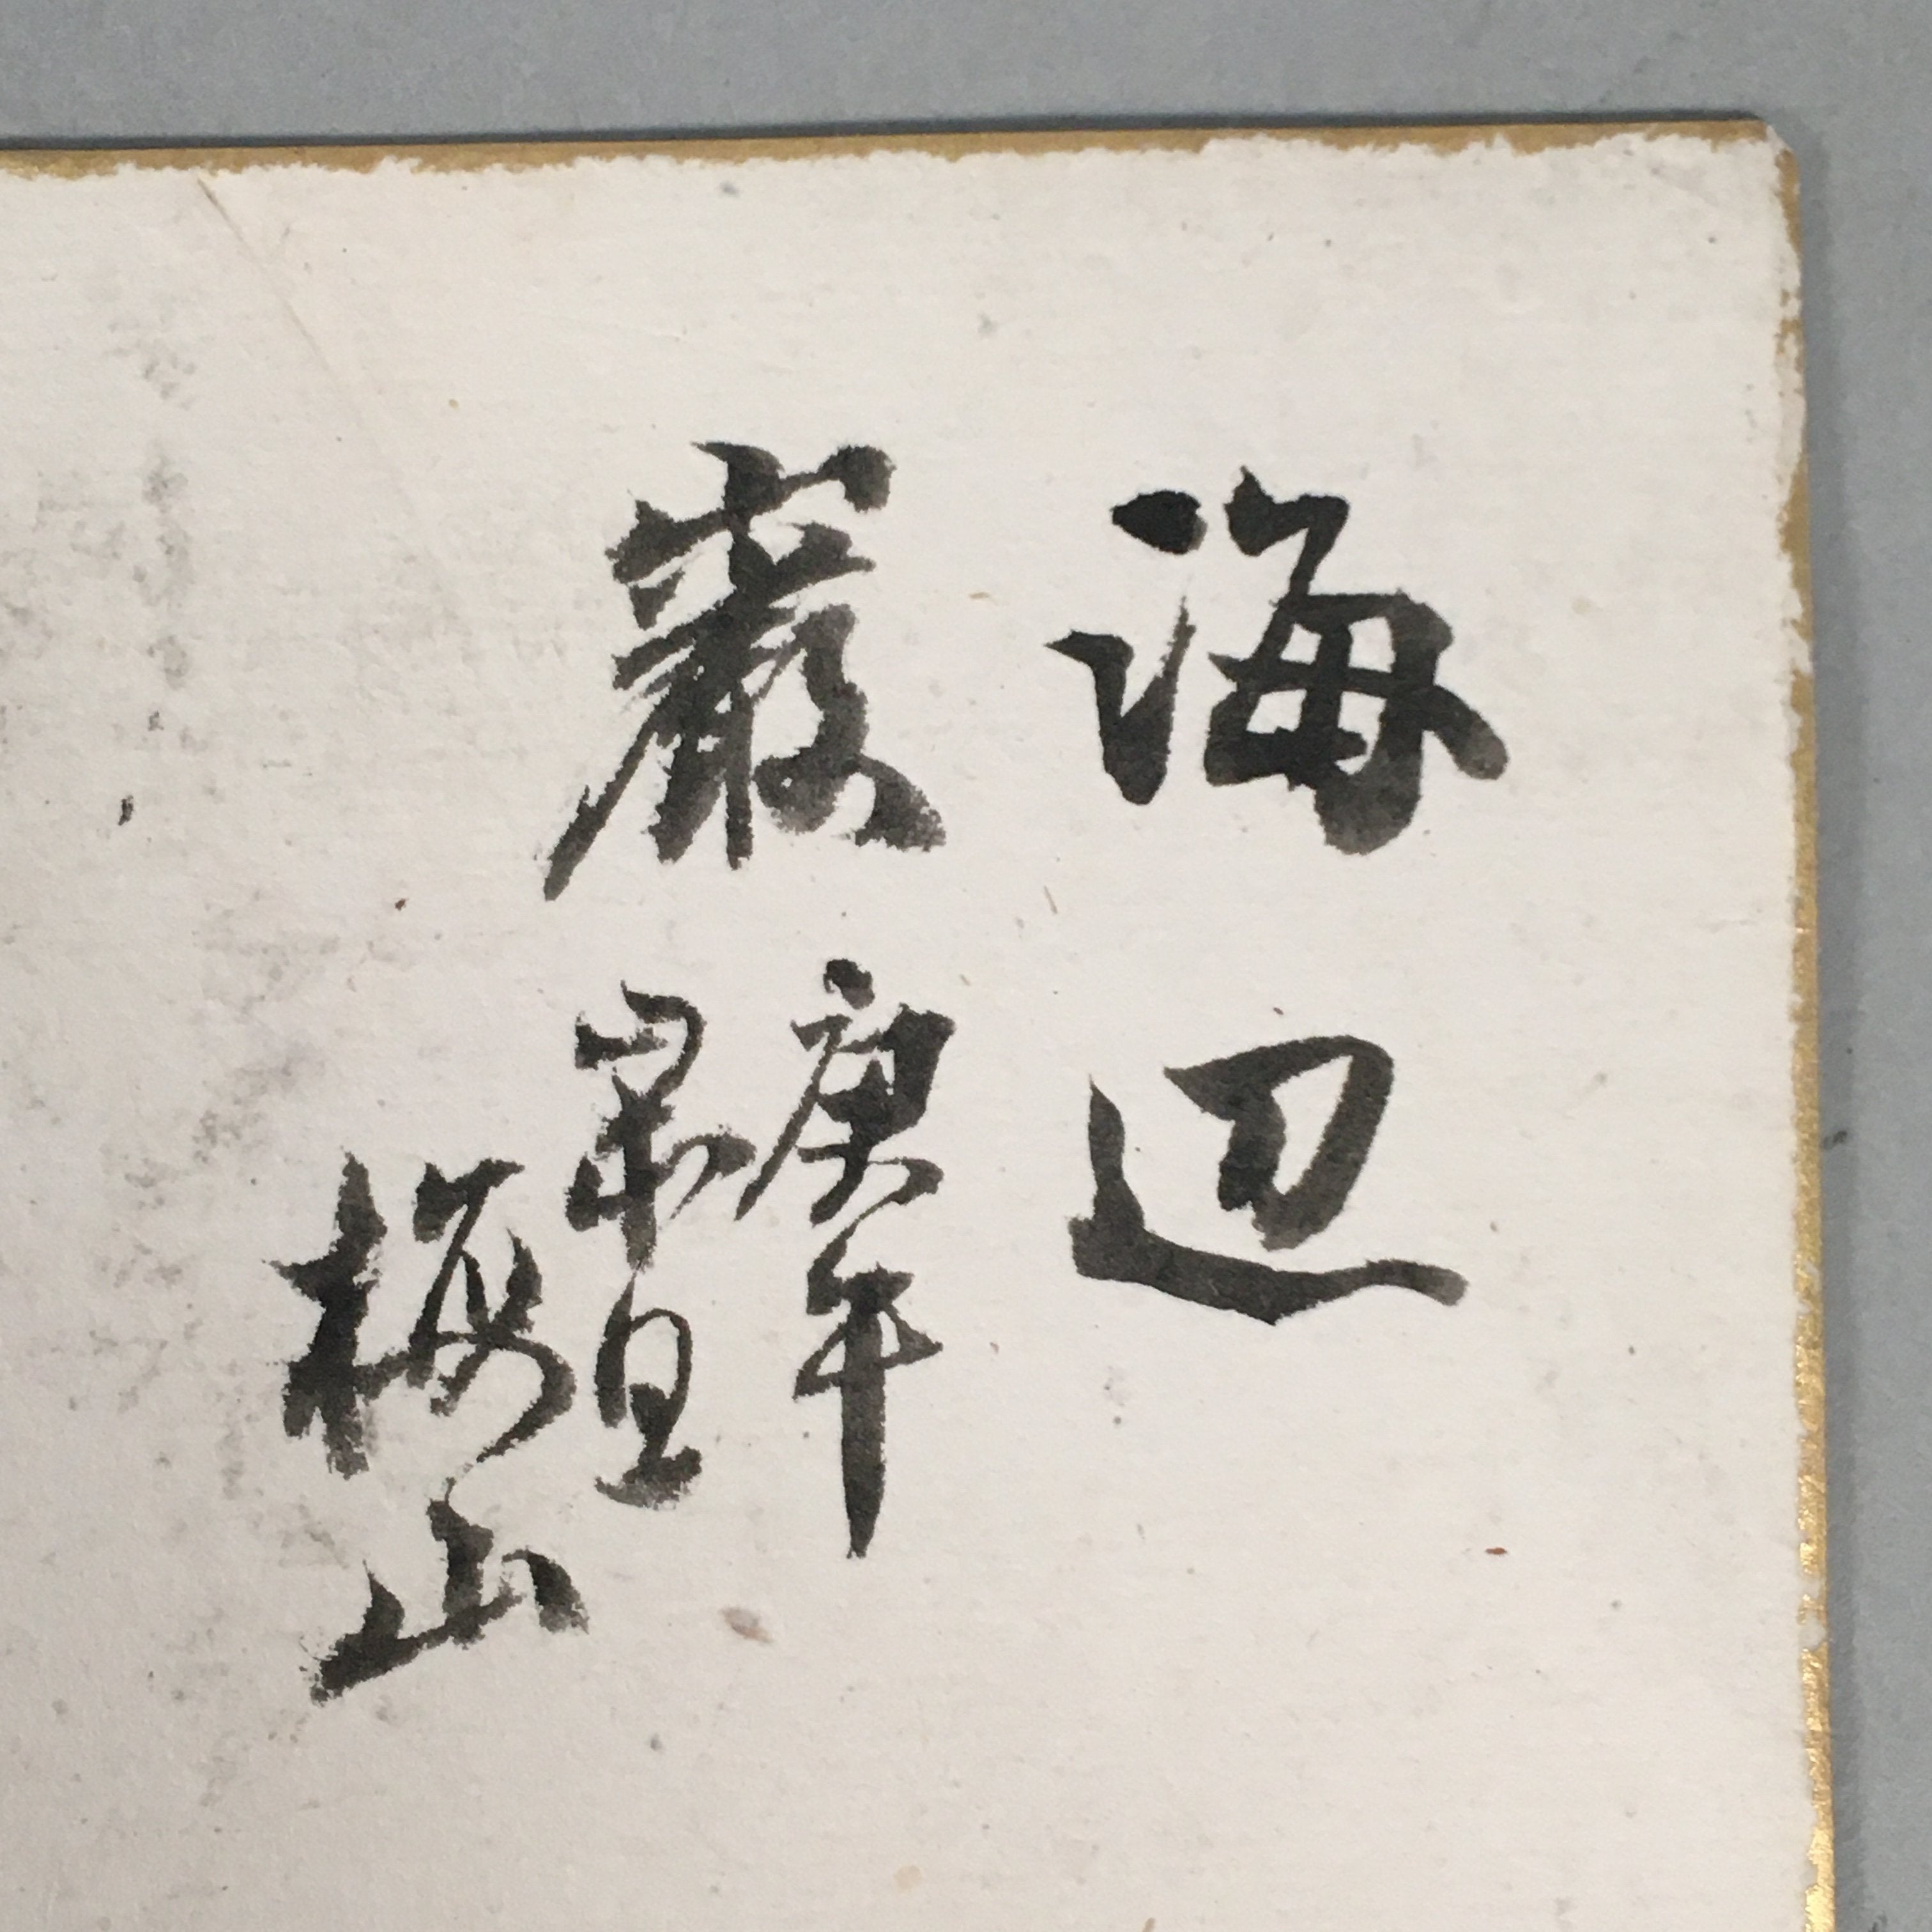 海辺
巌
庚午
晩夏日
梅山